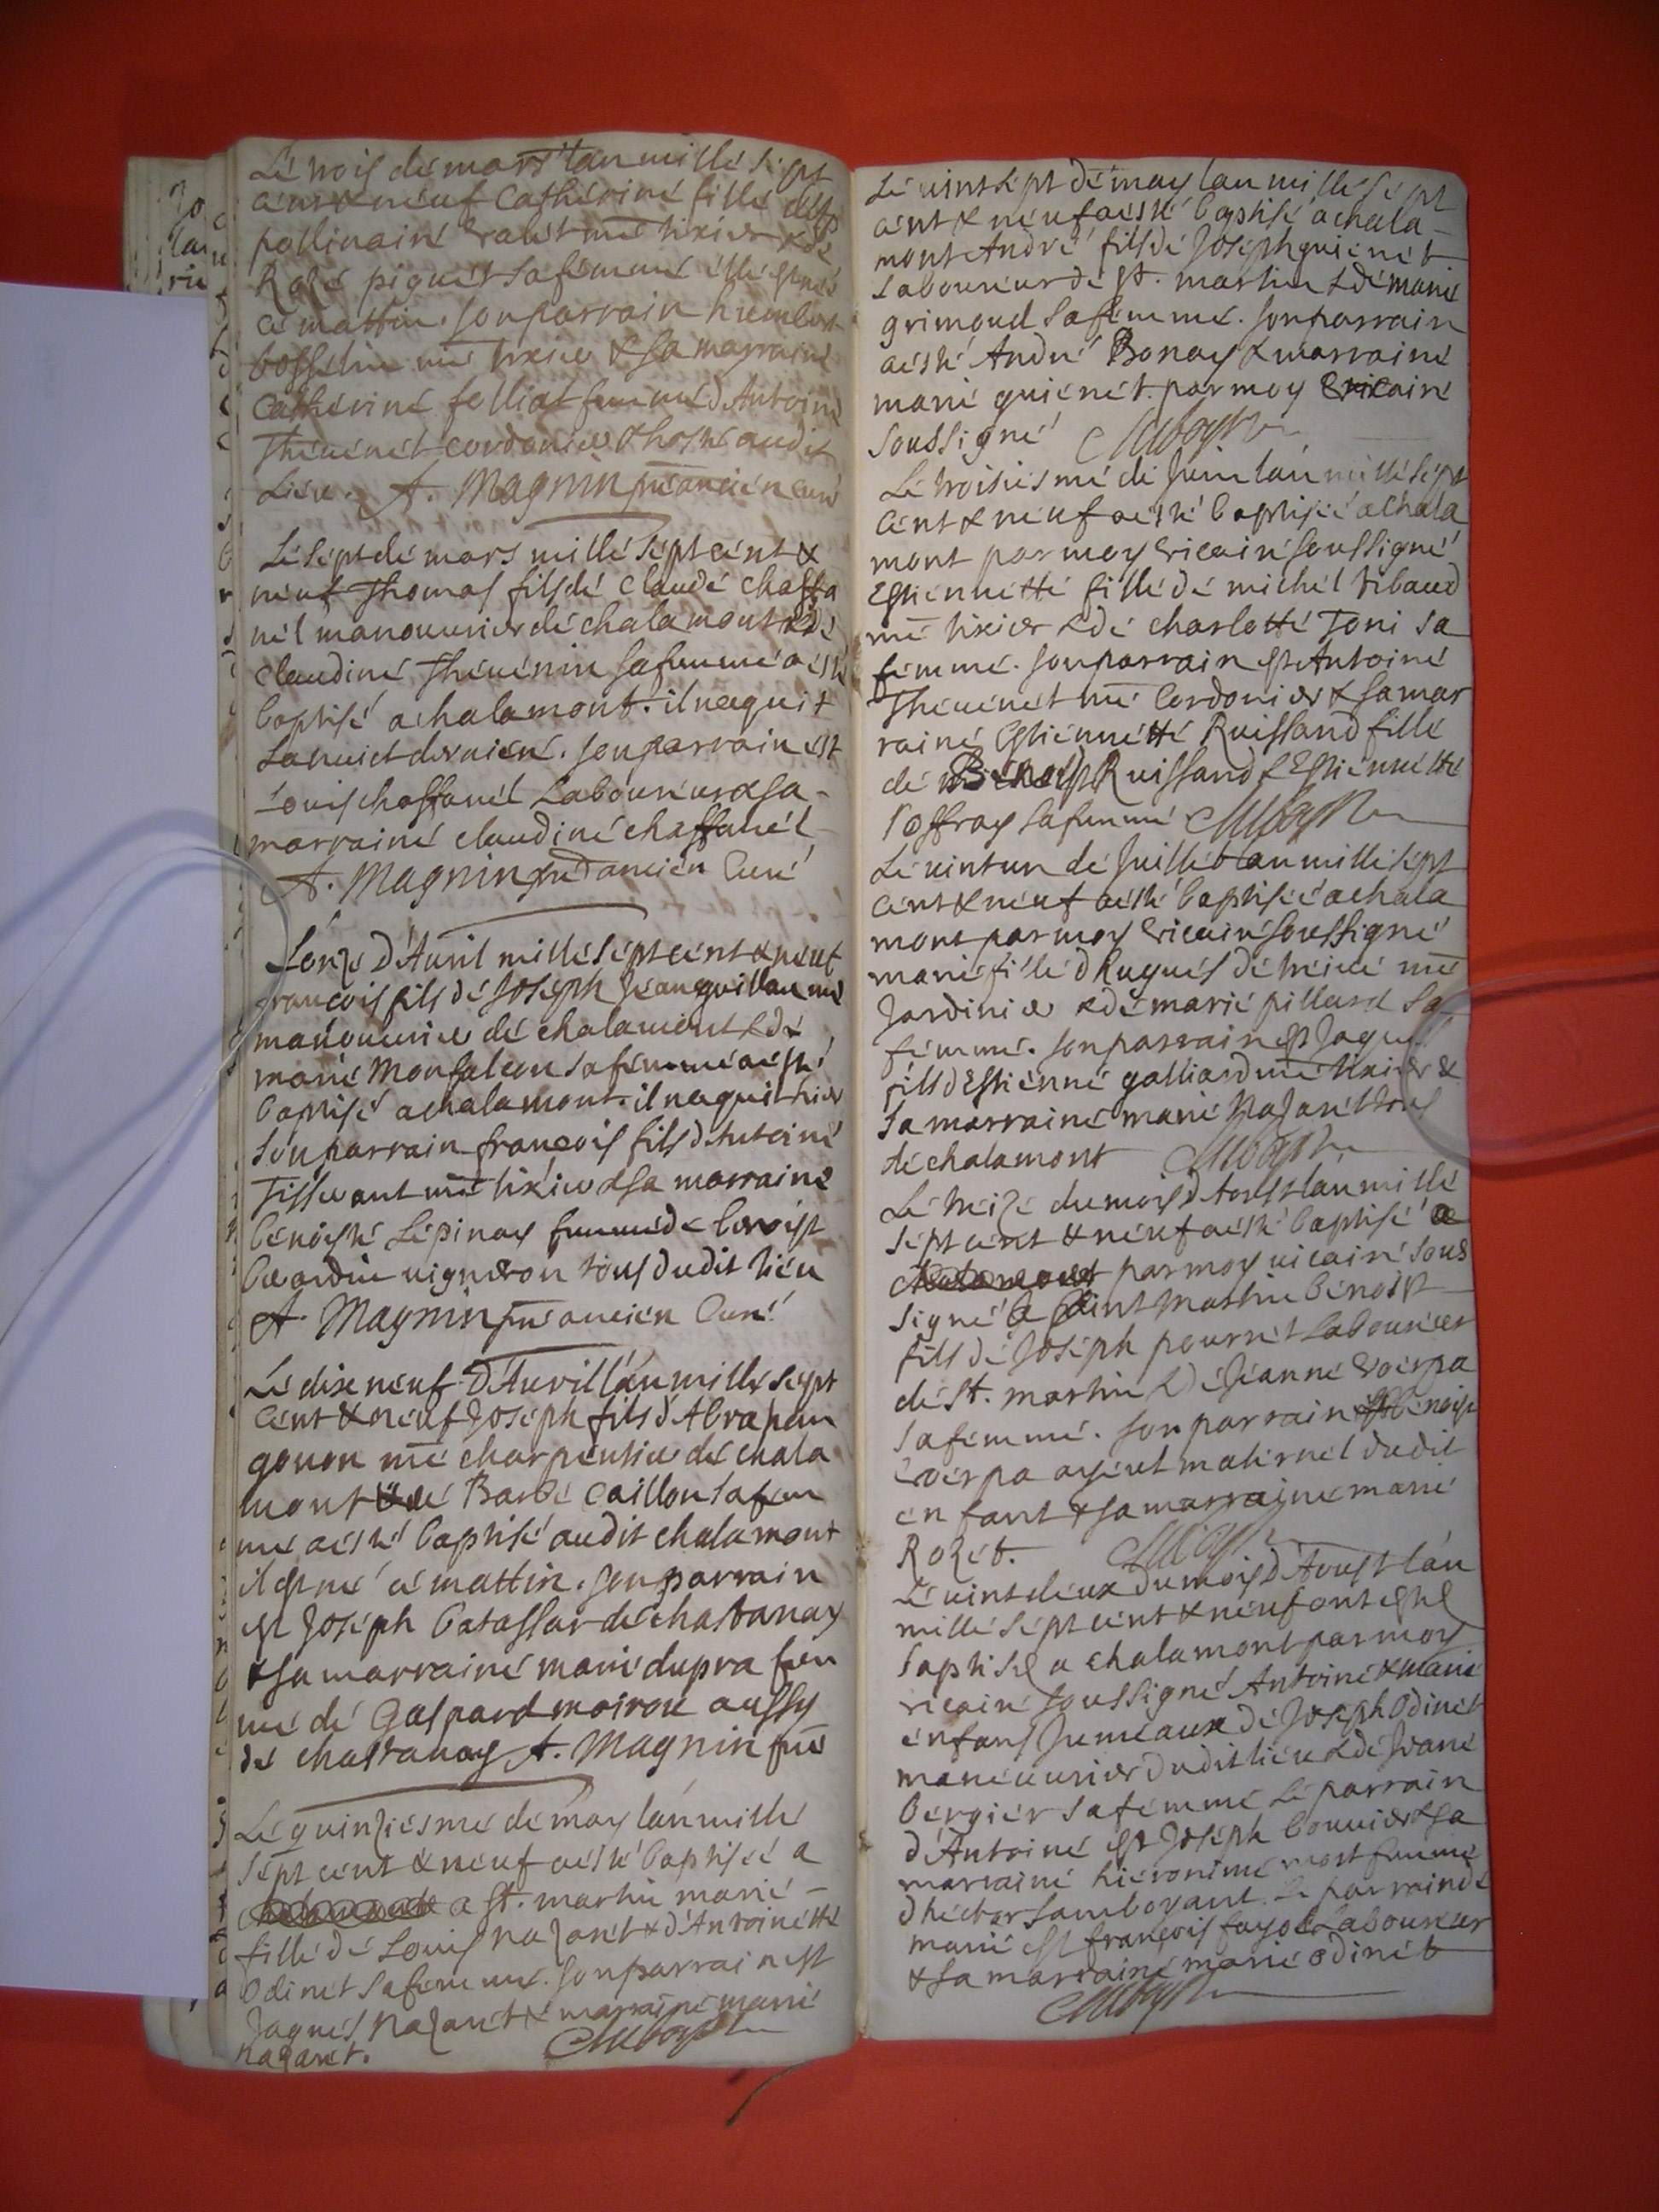 Lé trois dé mars l'an millé sépt
cént & néuf Cathériné fillé dé
pollinairé mé tixier & dé
Rozé piquét sa fémmé éllé est née
cé mattin. son parrain humbert
bossélin mé tixier & sa marrainé
Cathériné félliat femmé d'Antoiné
Thévénét cordonier & hosté audit
Liéu. A. Magnin pré ancién curé
Lé sépt dé mars millé sépt cént &
néuf Thomas fils dé Claudé chaffa
nél manouvrier dé chalamont & dé
Claudiné Thévénin sa femmé a ésté
baptisé a chalamont. il naquit
la nuict derniéré. son parrain ést
Louis chaffanél Labouréur & sa -
marrainé claudiné chaffanél
A. Magnin pré ancién Curé
L'onze d'Avril millé sépt cént & néuf
francois fils dé Joséph Jéanguillaumé
manouvrier dé chalamont & dé
marié Monfalcon sa fémmé a ésté
baptisé a chalamont. il naquit hier
son parrain francois fils d'Antoiné
Tissérant mé tixier & sa marrainé
bénoisté Lépinay femmé dé bénoist
béardin vigneron tous dudit liéu
A. Magnin pré ancién Curé
Lé dix néuf d'Avril l'an millé sépt
cént & néuf Joséph fils d'Abraham
gonon mé charpéntier dé chala
mont & dé Barbé Caillon sa fém
mé a ésté baptisé audit chalamont
il est né cé mattin. son parrain
est Joséph batassar dé chastanay
& sa marrainé marié dupra fém
mé dé Gaspard moiroux aussy
dé chastanay A. Magnin pré
Lé quinziésmé dé may l'an millé
sépt cént & néuf a ésté baptiséé a
a St. martin marié -
fillé dé Louis nazarét & d'Antoinétté
Odinét sa fémmé. son parrain est
Jaqués nazarét & marrainé marié
nazarét.
Lé vint sépt dé may l'an millé sépt
cént & néuf a ésté baptisé a chala -
mont André fils dé Joséph guiénét
Labouréur dé St. martin & dé marié
grimoud sa fémmé. son parrain
a ésté André Bonay & marrainé
marié guiénét. par moy vicairé
soussigné
Lé troisiésmé dé Juin l'an millé sépt
cént & néuf a ésté baptiséé a chala
mont par moy vicairé soussigné
Estiénnétté fillé dé michél tibaud
mé tixier & dé charlotté Toni sa
fémmé. son parrain est Antoiné
Thévénét mé Cordonier & sa mar
rainé Estiénnétté Ruissand fillé
dé Bénoist Ruissand & Estiénnétté
Joffray sa fémmé
Lé vint un dé Juillét l'an millé sépt
cént & néuf a ésté baptiséé a chala
mont par moy vicairé soussigné
marié fillé d'hugués dé mé
Jardinier & dé marié pillard sa
fémmé. son parrain est Jaqués
fils d'Estiénné galliard mé tixier &
sa marrainé marié Nazarét tous
dé chalamont
Lé tréizé du mois d'Aoust l'an millé
sépt cént & néuf a ésté baptisé
par moy vicairé sous
signé a saint martin bénoist
fils dé Joséph pourrét Labouréur
dé St. martin & dé Jéanné vérpa
sa fémmé. son parrain est bénoist
vérpa ayéul matérnél dudit
énfant & sa marrainé marié
Rozét.
Lé vint déux du mois d'Aoust l'an
millé sépt cént & néuf ont estés
baptisés a chalamont par moy
vicairé soussigné Antoiné & marié
énfans Juméaux dé Joséph Odinét
manéuvrier dudit liéu & dé Jéané
bérgiér sa fémmé Lé parrain
d'Antoiné est Joséph bouvier & sa
marrainé hiéronimé mort fémmé
d'héctor Lamboyant. Lé parrain dé
marié est francois fayolé Labouréur
& sa marrainé marié odinét